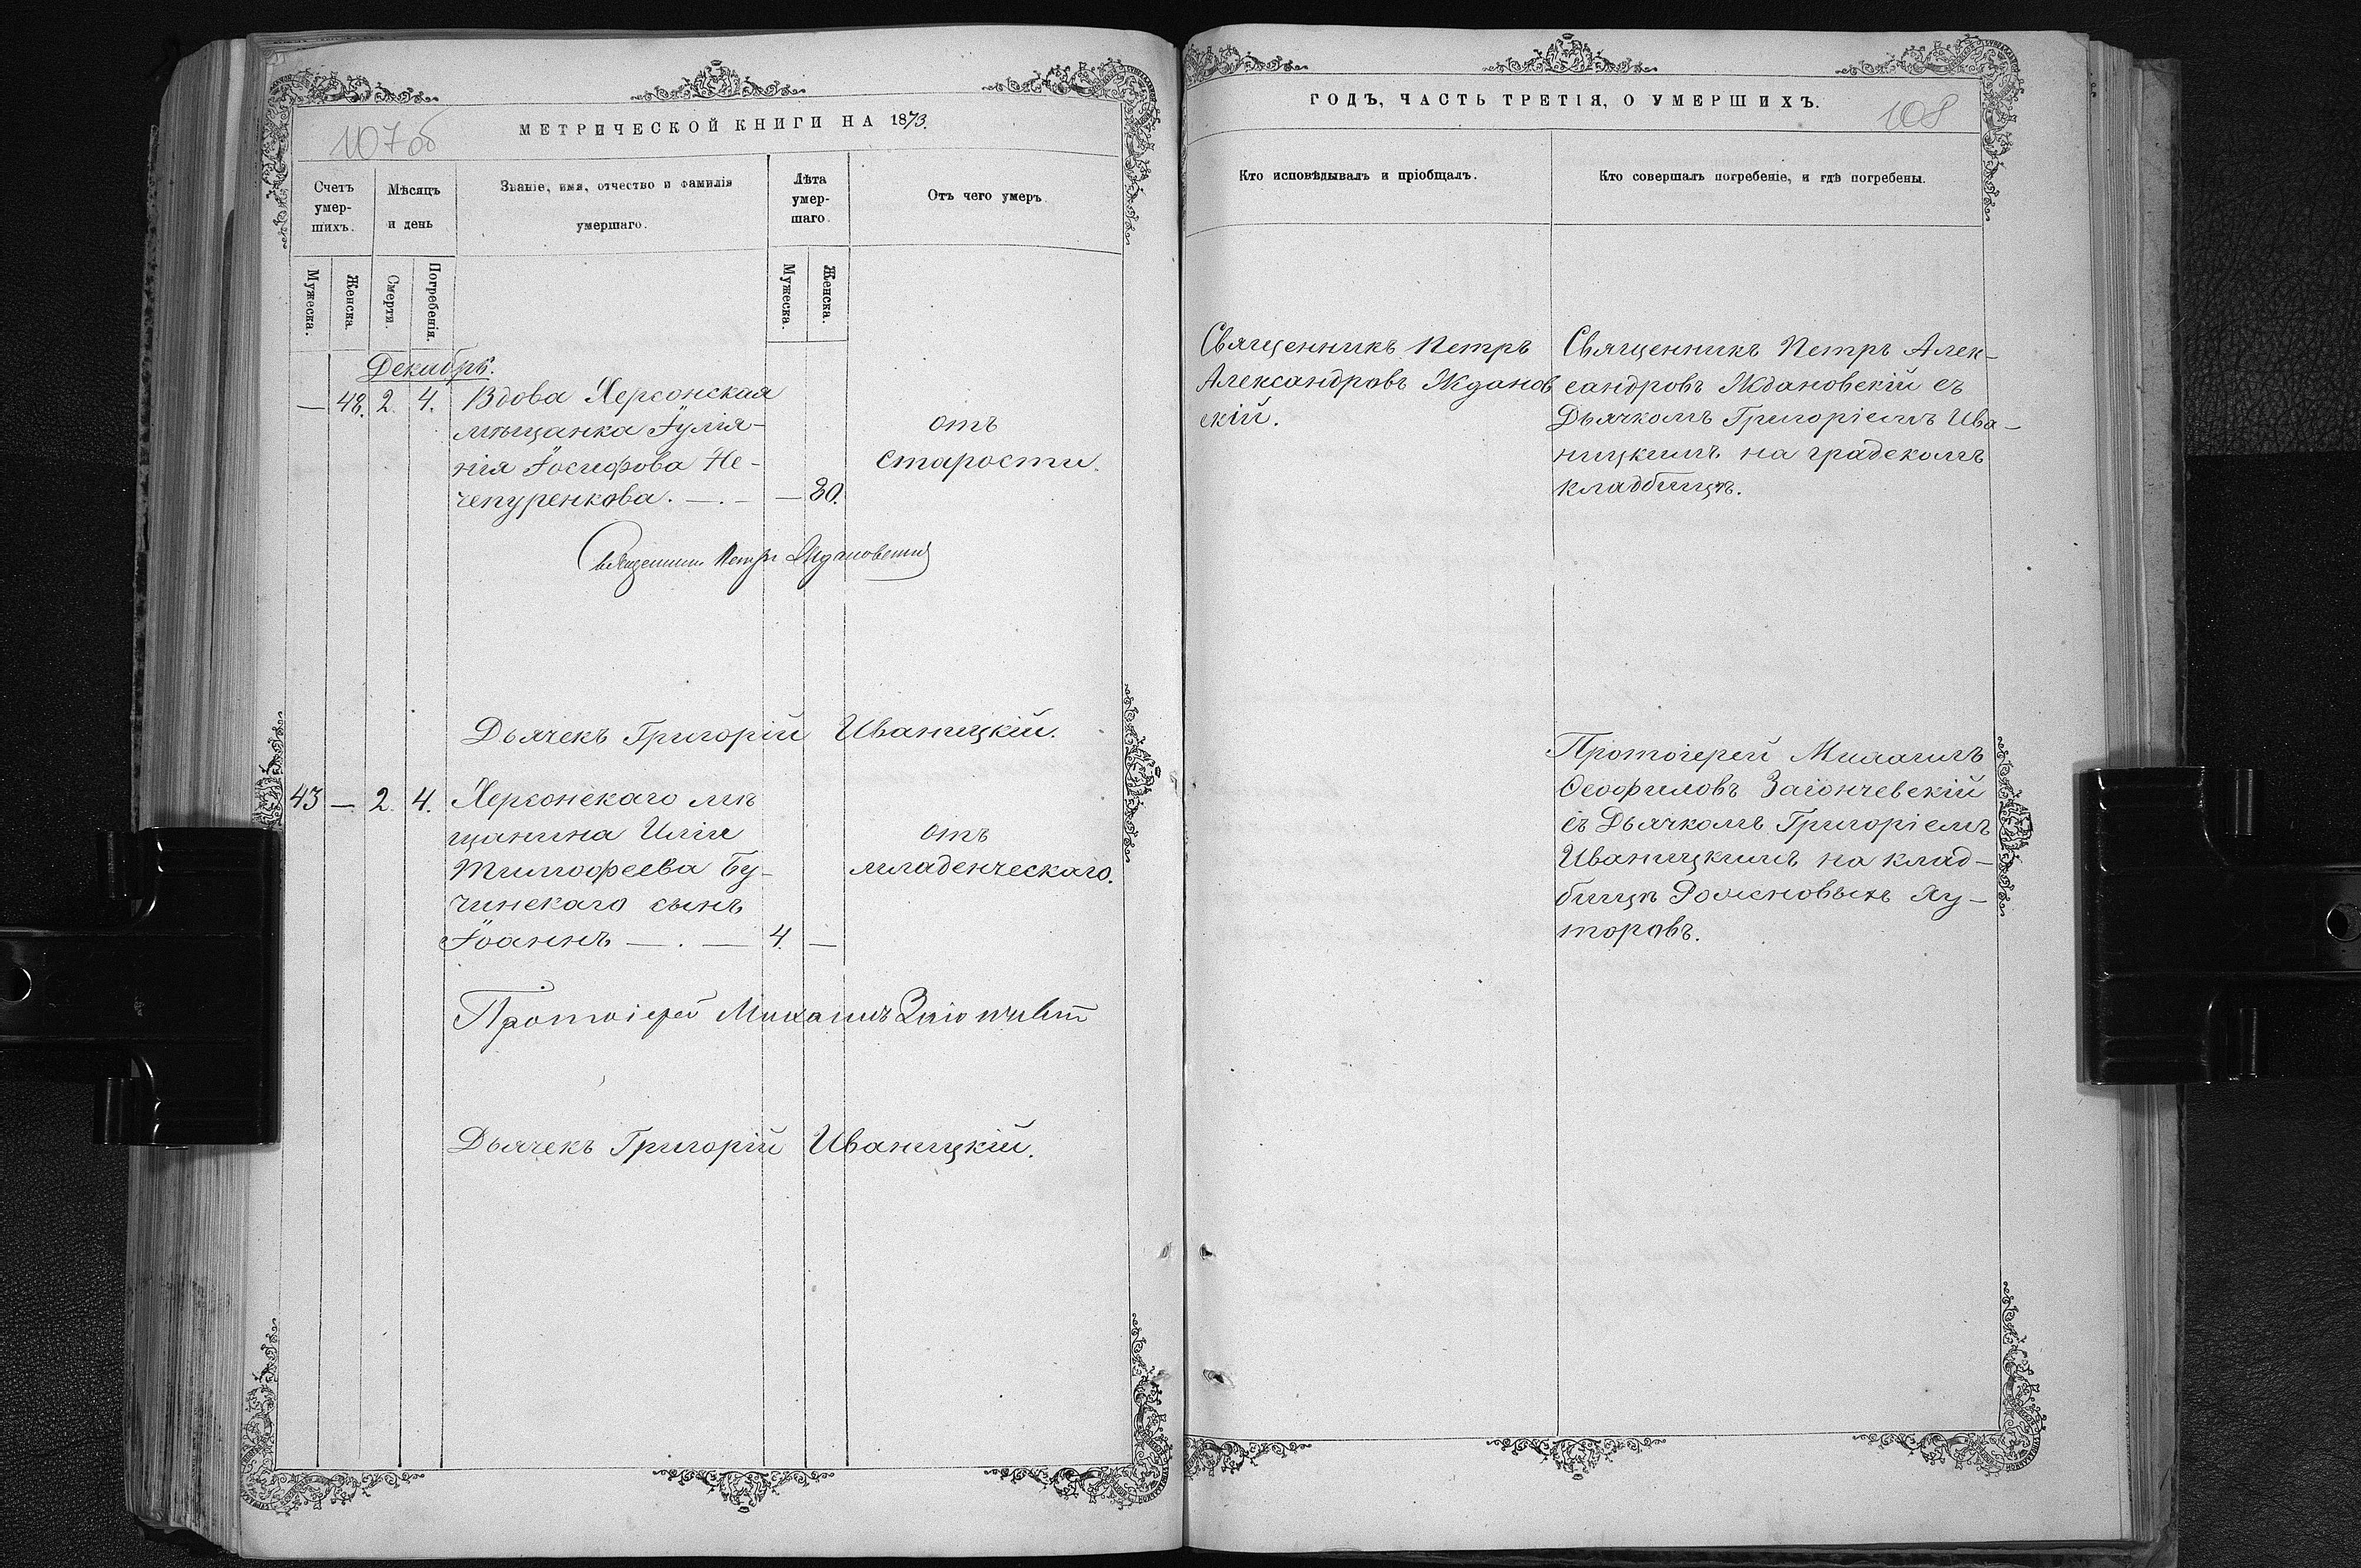 107об
МЕТРИЧЕСКОЙ КНИГИ НА 1873.
Счетъ умер-шихъ.
Мѣсяцъ и день
Званіе, имя, отчество и фамилія умершаго.
Лѣта умер-шаго.
Отъ чего умеръ
Мужеска.
Женска.
Смерти.
Погребенія.
Мужеска.
Женска.
Декабрь.
— 48. 2. 4. Вдова Херсонская
мѣщанка Іулiа-
нія Іосифова Не-
чепуренкова. —.— — 80.
отъ
старости.
Священникъ Петръ Ждановскій
Дьячекъ Григорій Иваницкій.
43 — 2. 4. Херсонскаго мѣ
щанина Иліи
Тимофеева Бу-
чинскаго сынъ
Іоаннъ —.— 4. —
отъ
младенческаго.
Протоіерей Михаилъ
Дьячекъ Григорій Иваницкій.
ГОДЪ, ЧАСТЬ ТРЕТІЯ, О УМЕРШИХЪ.
108
Кто исповѣдывалъ и пріобщалъ.
Кто совершалъ погребеніе, и гдѣ погребены.
Священникъ Петръ
Александровъ Жданов
скій.
Священникъ Петръ Алек-
сандровъ Ждановскій съ
Дьячкомъ Григоріемъ Ива-
ницкимъ на градскомъ
кладбищѣ.
Протоіерей Михаилъ
Ѳеофиловъ Заіончевскій
съ Дьячкомъ Григоріемъ
Иваницкимъ на клад-
бищѣ Рожновыхъ Ху-
торовъ.